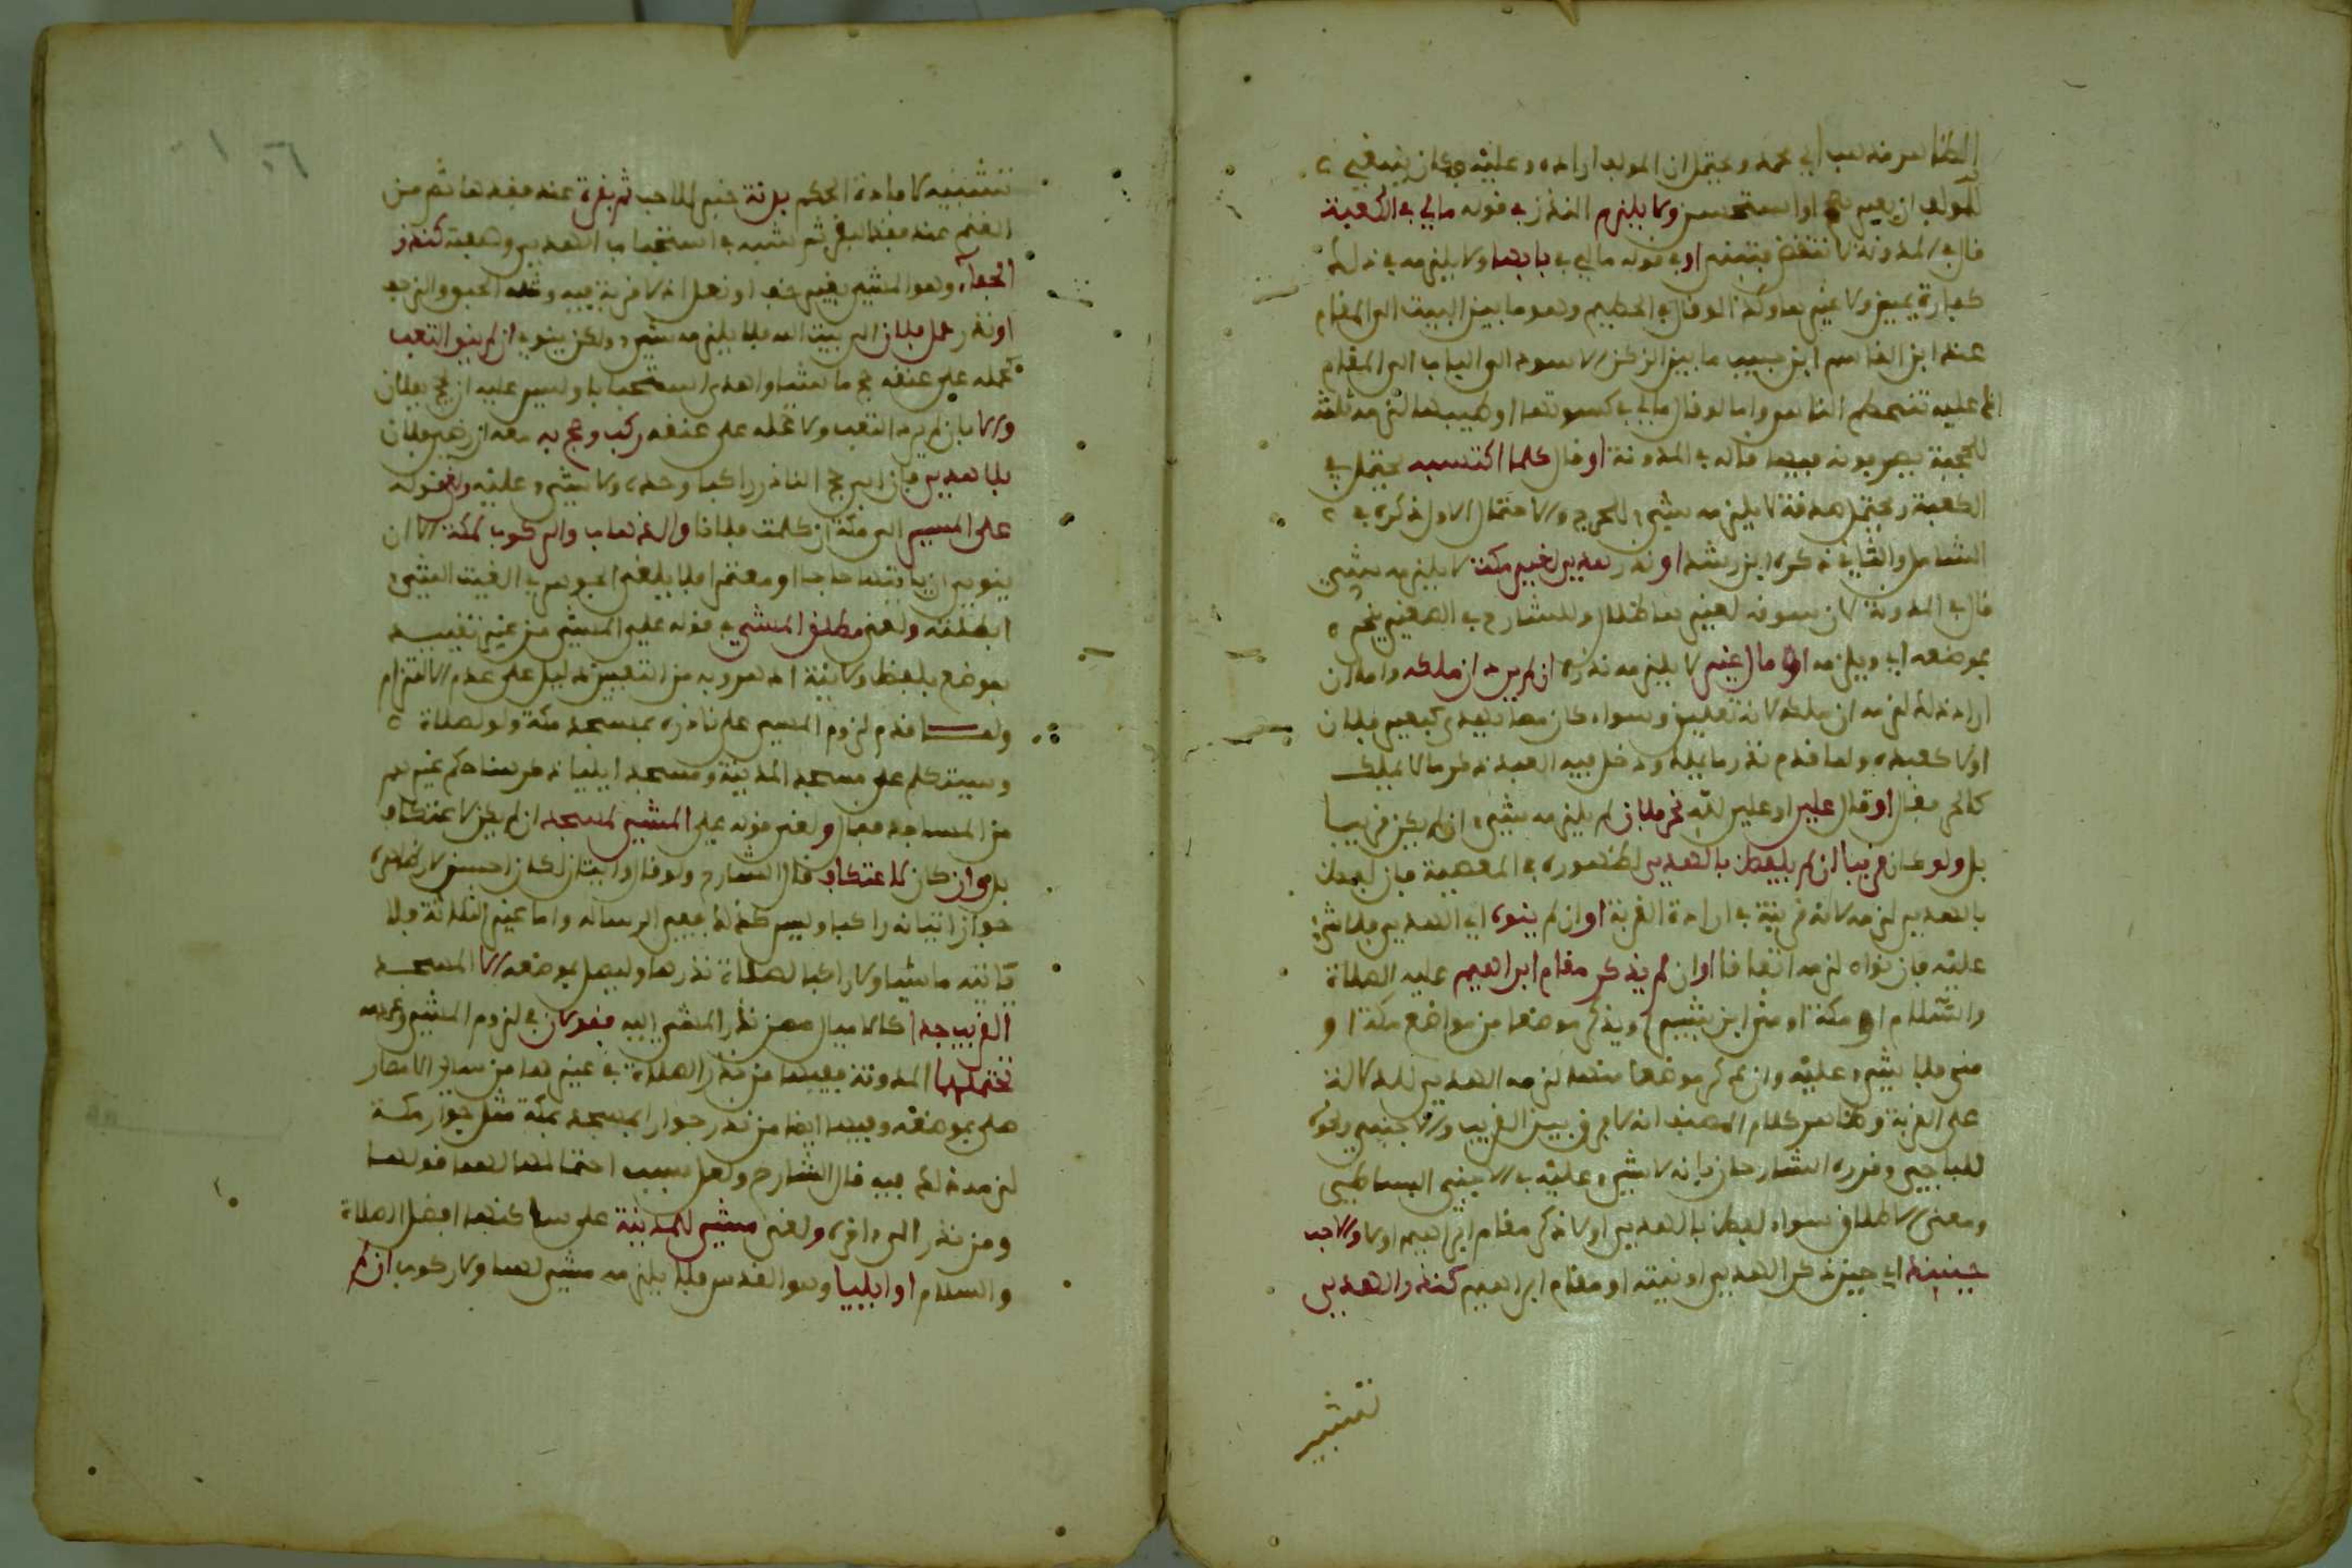 الظاهر مذهب ابي محمد ويحتمل ان المولف اراده وعليه فكان ينبغي
للمولف ان يعبر باو استحسن ولا يلزم النذر في قوله مالي في الكعبة
قال في المدونة لا تنقض فتبنى او في قوله مالي في بابها ولا يلزمه في ذلك
كفارة يمين ولا غيرها وكذا لو قال في الحطيم وهو ما بين البيت الى المقام
عند ابن القاسم ابن حبيب ما بين الركن الاسود الى الباب الى المقام
عليه تنحطم الناس واما لو قال مالي في كسوتها او طيبها لزمه ثلثه
للحجبة يصرفونه فيها قاله في المدونة او قال كلما اكتسبه يحتمل في
الكعبة ويحتمل صدقة لا يلزمه شيء للحرج والاحتمال الاول ذكره في
الشامل والثاني ذكره ابن رشد او نذر هدي لغير مكة لا يلزمه شيء
قال في المدونة لان سوقه لغيرها ضلال وللشارح في الصغير ينحره
بموضعه اي ويلزمه او مال غير لا يلزمه نذره ان لم يرد ان ملكه واما ان
اراد ذلك لزمه ان ملكه لانه تعليق وسواء كان مما يهدى كبعير فلان
اولا كعبده ولما قدم نذر ما يملك ودخل فيه العبد ذكر ما لا يملك
كالحر فقال او قال علي او علي لله نحر فلان لم يلزمه شيء ان لم يكن قريبا
بل ولو كان قريبا ان لم يلفظ بالهدي لظهوره في المعصية فان لفظ
بالهدي لزمه لانه قرينة في ارادة القربة او ان لم ينوه اي الهدي فلا شيء
عليه فان نواه لزمه اتفاقا او ان لم يذكر مقام ابراهيم عليه الصلاة
والسلام او مكة او منى ابن بشير او يذكر موضعا من مواضع مكة او
منى فلا شيء عليه وان ذكر موضعا منها لزمه الهدي للدلالة
على القربة وظاهر كلام المصنف انه لا فرق بين القريب والاجنبي ونحوه
للباجي وقرره الشارحان بانه لا شيء عليه في الاجنبي البساطي
ومعنى الاطلاق سواء لفظ بالهدي او لا ذكر مقام ابراهيم او لا والاحب
حينئذ اي حين ذكر الهدي او نيته او مقام ابراهيم كنذر الهدي
تشبيه
تشبيه لا فادة الحكم بدنة خبر الاحب ثم بقرة عند فقدها ثم من
الغنم عند فقد البقر ثم شبه في استحباب الهدي وصفته كنذر
الحفاء وهو المشي بغير خف او نعل اذ لا قربة فيه ومثله الحبو والزحف
او نذر حمل فلان الى بيت الله فلا يلزمه شيء ولكن ينوي ان لم ينو التعب
بحمله على عنقه حج ماشيا واهدى استحبابا وليس عليه ان يحج بفلان
والا بان لم يرد التعب ولا حمله على عنقه ركب وحج به معه ان رضي فلان
بلا هدي فان ابى حج الناذر راكبا وحده ولا شيء عليه ولغى قوله
علي المسير الى مكة ان كلمت فلانا والذهاب والركوب لمكة الا ان
ينوي ان ياتيها حاجا او معتمرا فلا يلغى الجوهري الغيت الشيء
ابطلته ولغى مطلق المشي في قوله علي المشي من غير تقييد
بموضع بلفظ ولا نية اذ هروبه من التعيين دليل على عدم الالتزام
ولما قدم لزوم المسير على ناذره بمسجد مكة ولو لصلاة
وسيتكلم على مسجد المدينة ومسجد ايليا ذكر هنا حكم غيرهم
من المساجد فقال ولغى قوله علي المشي لمسجد ان لم يكن لاعتكاف
بل وان كان لاعتكاف قال الشارح ولو قال واتيان لكان احسن لان ظاهره
جواز اتيانه راكبا وليس كذلك ففي الرسالة واما غير الثلاثة فلا
ياتيه ماشيا ولا راكبا لصلاة نذرها وليصل بموضعه الا المسجد
القريب جدا كالاميال ممن نذر المشي اليه فقولان في لزوم المشي وعدمه
تحتملهما المدونة ففيها من نذر الصلاة في غيرها من سائر الامصار
صلى بموضعه وفيها ايضا من نذر جوار المسجد بمكة مثل جوار مكة
لزمه ذلك فيه قال الشارح ولعل سبب احتمالها لهما قولها
ومن نذر الى واخره ولغى مشي للمدينة على ساكنها افضل الصلاة
والسلام او ايليا وهو القدس فلا يلزمه مشي لهما ولا ركوب ان لم